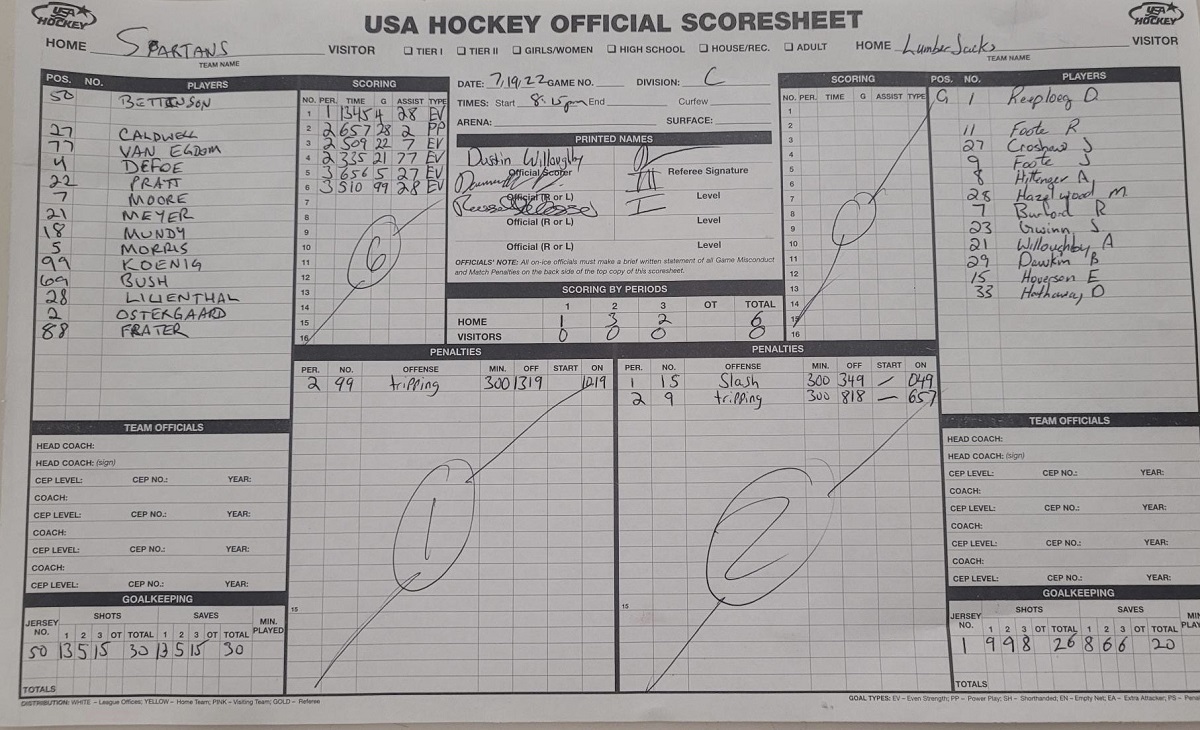 USA HOCKEY
USA HOCKEY OFFICIAL SCORESHEET
USA HOCKEY
HOME SPARTANS VISITOR
TEAM NAME
☐ TIER I ☐ TIER II ☐ GIRLS/WOMEN ☐ HIGH SCHOOL ☐ HOUSE/REC. ☐ ADULT
HOME LumberJacks VISITOR
TEAM NAME
POS. NO. PLAYERS
50 BETTINSON
27 CALDWELL
77 VAN EGDOM
4 DEFOE
22 PRATT
7 MOORE
21 MEYER
18 MUNDY
5 MORRIS
99 KOENIG
69 BUSH
28 LILIENTHAL
2 OSTERGAARD
88 FRATER
SCORING
NO. PER. TIME G ASSIST TYPE
1 1 1345 4 28 EV
2 2 657 28 2 PP
3 2 509 22 7 EV
4 2 335 21 77 EV
5 3 656 5 27 EV
6 3 510 99 28 EV
7
8
9
10
11
12
13
14
15
16
6
DATE: 7/19/22 GAME NO. DIVISION: C
TIMES: Start 8:15pm End Curfew
ARENA: SURFACE:
PRINTED NAMES
Dustin Willoughby
Official Scorer Referee Signature
III
Official (R or L) Level
I
Official (R or L) Level
Official (R or L) Level
OFFICIALS' NOTE: All on-ice officials must make a brief written statement of all Game Misconduct
and Match Penalties on the back side of the top copy of this scoresheet.
SCORING BY PERIODS
1 2 3 OT TOTAL
HOME 1 3 2 6
VISITORS 0 0 0 0
SCORING
NO. PER. TIME G ASSIST TYPE
1
2
3
4
5
6
7
8
9
10
11
12
13
14
15
16
0
POS. NO. PLAYERS
G 1 Reeploeg D
11 Foote R
27 Croshaw J
9 Foote J
8 Hittenger A
28 Hazelwood M
7 Burford R
23 Gwinn S
21 Willoughby A
29 Dawkin B
15 Hoverson E
33 Hathaway D
PENALTIES
PER. NO. OFFENSE MIN. OFF START ON
2 99 tripping 300 1319 1019
1
15
PENALTIES
PER. NO. OFFENSE MIN. OFF START ON
1 15 Slash 300 349 — 049
2 9 tripping 300 818 — 657
2
15
TEAM OFFICIALS
HEAD COACH:
HEAD COACH: (sign)
CEP LEVEL: CEP NO.: YEAR:
COACH:
CEP LEVEL: CEP NO.: YEAR:
COACH:
CEP LEVEL: CEP NO.: YEAR:
COACH:
CEP LEVEL: CEP NO.: YEAR:
GOALKEEPING
JERSEY NO. SHOTS SAVES MIN. PLAYED
1 2 3 OT TOTAL 1 2 3 OT TOTAL
50 13 5 15 30 13 5 15 30
TOTALS
TEAM OFFICIALS
HEAD COACH:
HEAD COACH: (sign)
CEP LEVEL: CEP NO.: YEAR:
COACH:
CEP LEVEL: CEP NO.: YEAR:
COACH:
CEP LEVEL: CEP NO.: YEAR:
COACH:
CEP LEVEL: CEP NO.: YEAR:
GOALKEEPING
JERSEY NO. SHOTS SAVES MIN PLAY
1 2 3 OT TOTAL 1 2 3 OT TOTAL
1 9 9 8 26 8 6 6 20
TOTALS
DISTRIBUTION: WHITE – League Offices; YELLOW – Home Team; PINK – Visiting Team; GOLD – Referee
GOAL TYPES: EV – Even Strength; PP – Power Play; SH – Shorthanded; EN – Empty Net; EA – Extra Attacker; PS – Pena